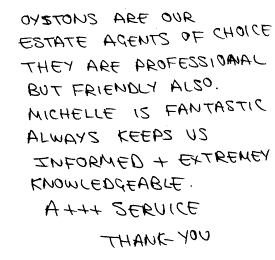 OYSTONS ARE OUR
ESTATE AGENTS OF CHOICE
THEY ARE PROFESSIONAL
BUT FRIENDLY ALSO.
MICHELLE IS FANTASTIC
ALWAYS KEEPS US
INFORMED + EXTREMEY
KNOWLEDGEABLE.
A+++ SERVICE
THANK YOU